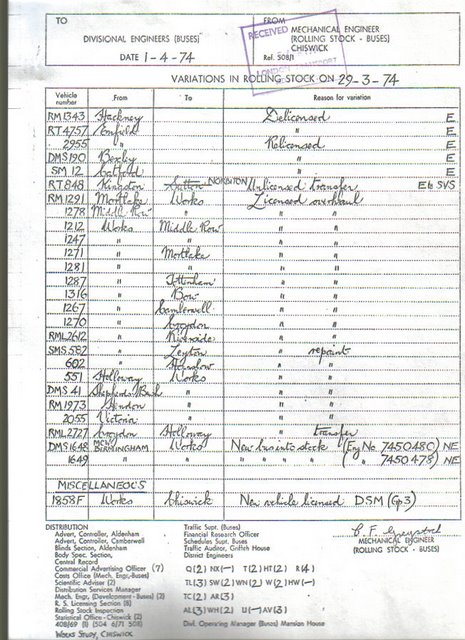 TO
FROM
DIVISIONAL ENGINEERS (BUSES)
MECHANICAL ENGINEER
(ROLLING STOCK - BUSES)
CHISWICK
RECEIVED
LONDON TRANSPORT
DATE 1-4-74
Ref. 508/1
VARIATIONS IN ROLLING STOCK ON 29-3-74
Vehicle number From To Reason for variation
RM1343 Hackney Delicensed E
RT4757 Enfield " E
2955 " Relicensed E
DMS190 Bexley " E
SM12 Catford " E
RT848 Kingston Sutton NORBITON Unlicensed transfer E to SVS
RM1291 Mortlake Works Licensed overhaul
1278 Middle Row " " "
1212 Works Middle Row " "
1247 " " " "
1271 " Mortlake " "
1281 " " " "
1287 " Tottenham " "
1316 " Bow " "
1267 " Camberwell " "
1270 " Croydon " "
RML2612 " Riverside " "
SMS582 " Leyton " repaint
602 " Hounslow " "
551 Holloway Works " "
DMS41 Shepherds Bush " " "
RM1973 Hendon " " "
2055 Victoria " " "
RML2727 Croydon Holloway " transfer
DMS1648 MCW BIRMINGHAM Works New bus into stock (Eng No 7450480) NE
1649 " " " " " " ( " 7450478) NE
MISCELLANEOUS
1858F Works Chiswick New vehicle licensed DSM (Gp3)
DISTRIBUTION
Advert. Controller, Aldenham
Advert. Controller, Camberwell
Blinds Section, Aldenham
Body Spec. Section,
Central Record
Commercial Advertising Officer (7)
Costs Office (Mech. Engr.-Buses)
Scientific Adviser (2)
Distribution Services Manager
Mech. Engr. (Development - Buses) (2)
R. S. Licensing Section (8)
Rolling Stock Inspection
Statistical Office - Chiswick (2)
WORKS STUDY, CHISWICK
Traffic Supt. (Buses)
Financial Research Officer
Schedules Supt. Buses
Traffic Auditor, Griffith House
District Engineers
Q(2) NX(-) T(2) HT(2) R(4)
TL(3) SW(2) WN(2) W(2) HW(-)
TC(2) AR(3)
AL(3) WH(2) U(-) AV(3)
Divl. Operating Manager (Buses) Mansion House
MECHANICAL ENGINEER
(ROLLING STOCK - BUSES)